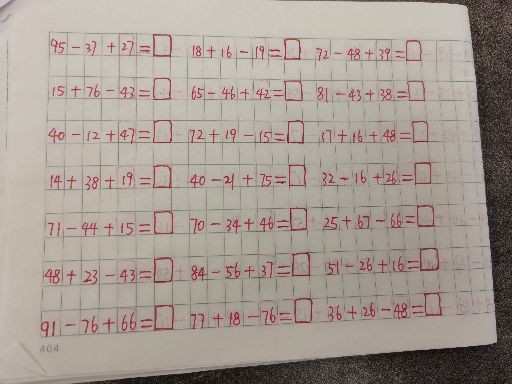 95-37+27=□ 18+16-19=□ 72-48+39=□
15+76-43=□ 65-46+42=□ 81-43+38=□
40-12+47=□ 72+19-15=□ 17+16+48=□
14+38+19=□ 40-21+75=□ 32-16+26=□
71-44+15=□ 70-34+46=□ 25+67-66=□
48+23-43=□ 84-56+37=□ 51-26+16=□
91-76+66=□ 77+18-76=□ 36+26-48=□
404